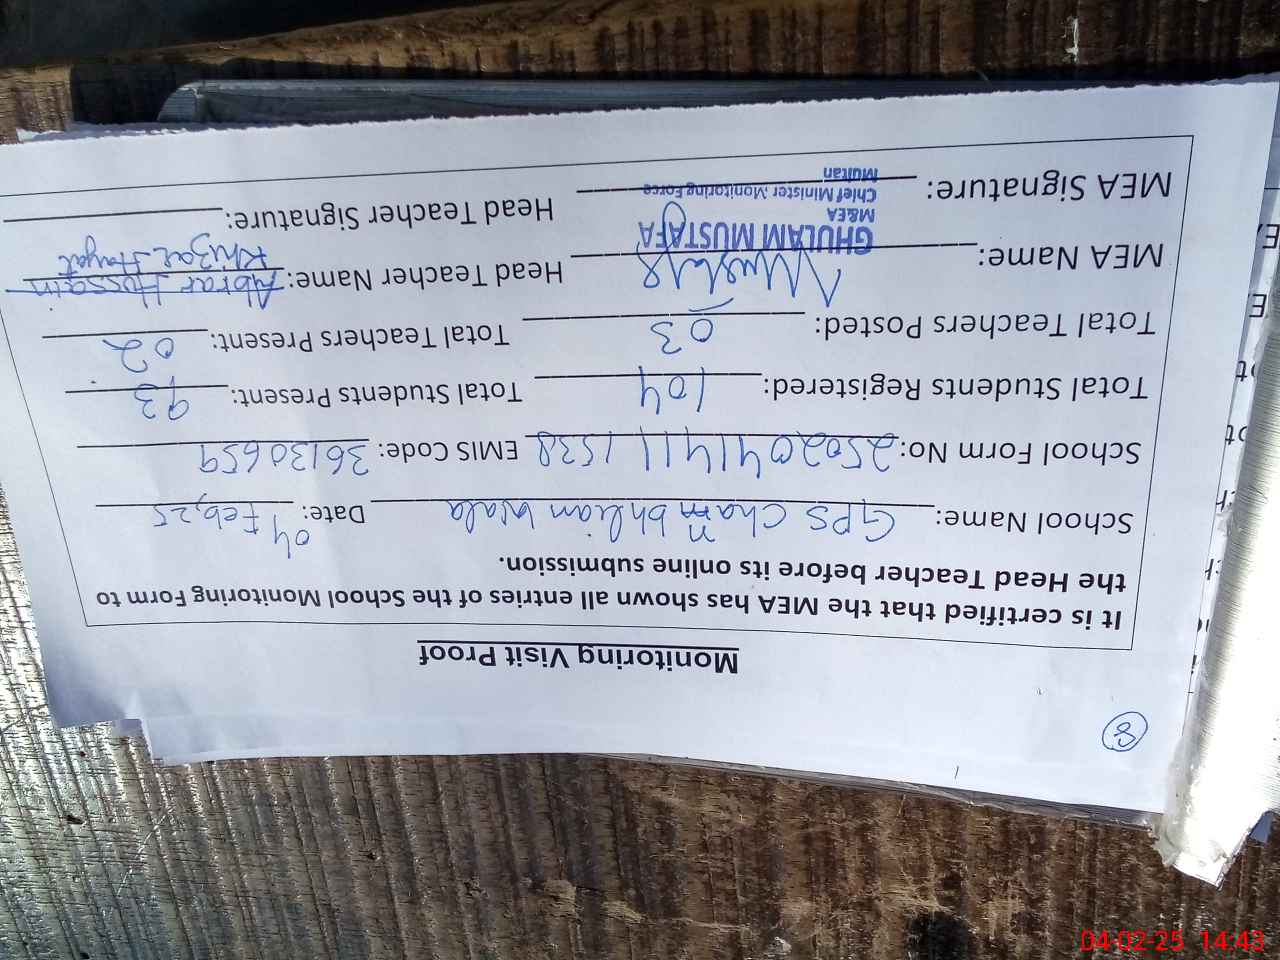 8
Monitoring Visit Proof
It is certified that the MEA has shown all entries of the School Monitoring Form to
the Head Teacher before its online submission.
School Name: GPS Chambhlian Wala Date: 04 Feb, 25
School Form No: 25020414111538 EMIS Code: 36130659
Total Students Registered: 104 Total Students Present: 93
Total Teachers Posted: 03 Total Teachers Present: 02
MEA Name: Head Teacher Name: Abrar Hussain
Khizar Hayat
GHULAM MUSTAFA
M&EA
Chief Minister Monitoring Force
Multan
MEA Signature: Head Teacher Signature:
04-02-25 14:43